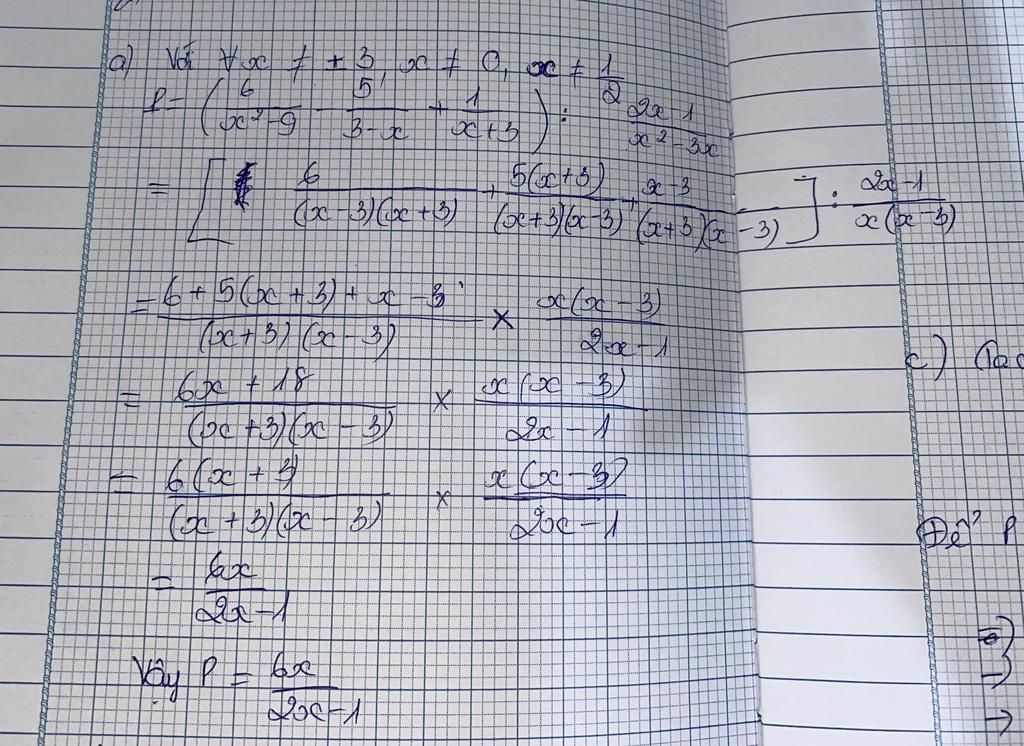 a) Với ∀x ≠ ±3, x ≠ 0, x ≠ 1/2
P = (6/(x²-9) - 5/(3-x) + 1/(x+3)) : (2x-1)/(x²-3x)
= [6/((x-3)(x+3)) + 5(x+3)/((x+3)(x-3)) + (x-3)/((x+3)(x-3))] : (2x-1)/(x(x-3))
= (6+5(x+3)+x-3)/((x+3)(x-3)) × x(x-3)/(2x-1)
= (6x+18)/((x+3)(x-3)) × x(x-3)/(2x-1)
= 6(x+3)/((x+3)(x-3)) × x(x-3)/(2x-1)
= 6x/(2x-1)
Vậy P = 6x/(2x-1)
c)
Để P
→